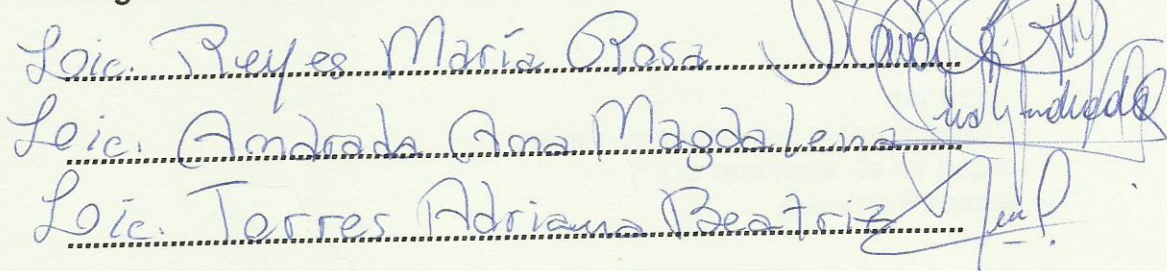 Lic. Reyes María Rosa
Lic. Andrada Ana Magdalena
Lic. Torres Adriana Beatriz